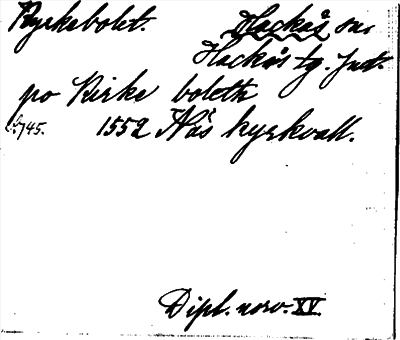 Kyrkebolet. Hackås sn.
Hackås tg. Jmtl.
po Kirke boleth
s. 745. 1552 Näs kyrkvall.
Dipl. norv. XV.